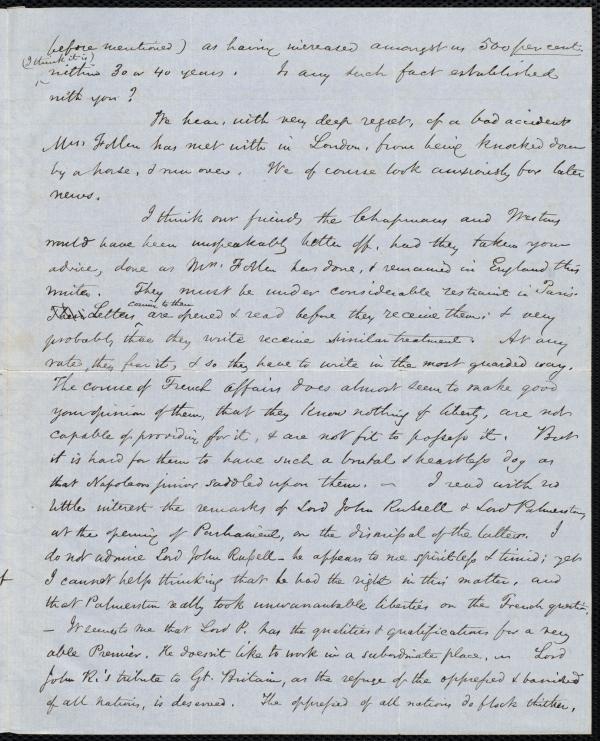 before mentioned) as having increased amongst us 500 per cent.
(I think it is)
within 30 or 40 years. Is any such fact established
with you?
We hear, with very deep regret, of a bad accident
Mrs. Follen has met with in London, from being knocked down
by a horse, & run over. We of course look anxiously for later
news.
I think our friends the Chapmans and Westons
would have been unspeakably better off, had they taken your
advice, done as Mrs. Follen has done, & remained in England this
winter. They must be under considerable restraint in Paris.
coming to them
Their Letters are opened & read before they receive them; & very
probably those they write receive similar treatment. At any
rate, they fear it, & so they have to write in the most guarded way.
The course of French affairs does almost seem to make good
your opinion of them, that they know nothing of liberty, are not
capable of providing for it, & are not fit to possess it. But
it is hard for them to have such a brutal & heartless dog as
that Napoleon junior saddled upon them. — I read with no
little interest the remarks of Lord John Russell & Lord Palmerston,
at the opening of Parliament, on the dismissal of the latter. I
do not admire Lord John Russell – he appears to me spiritless & timid; yet
I cannot help thinking that he had the right in this matter, and
that Palmerston really took unwarrantable liberties on the French question.
– It seems to me that Lord P. has the qualities & qualifications for a very
able Premier. He doesn't like to work in a subordinate place. Lord
John R.'s tribute to Gt. Britain, as the refuge of the oppressed & banished
of all nations, is deserved. The oppressed of all nations do flock thither,